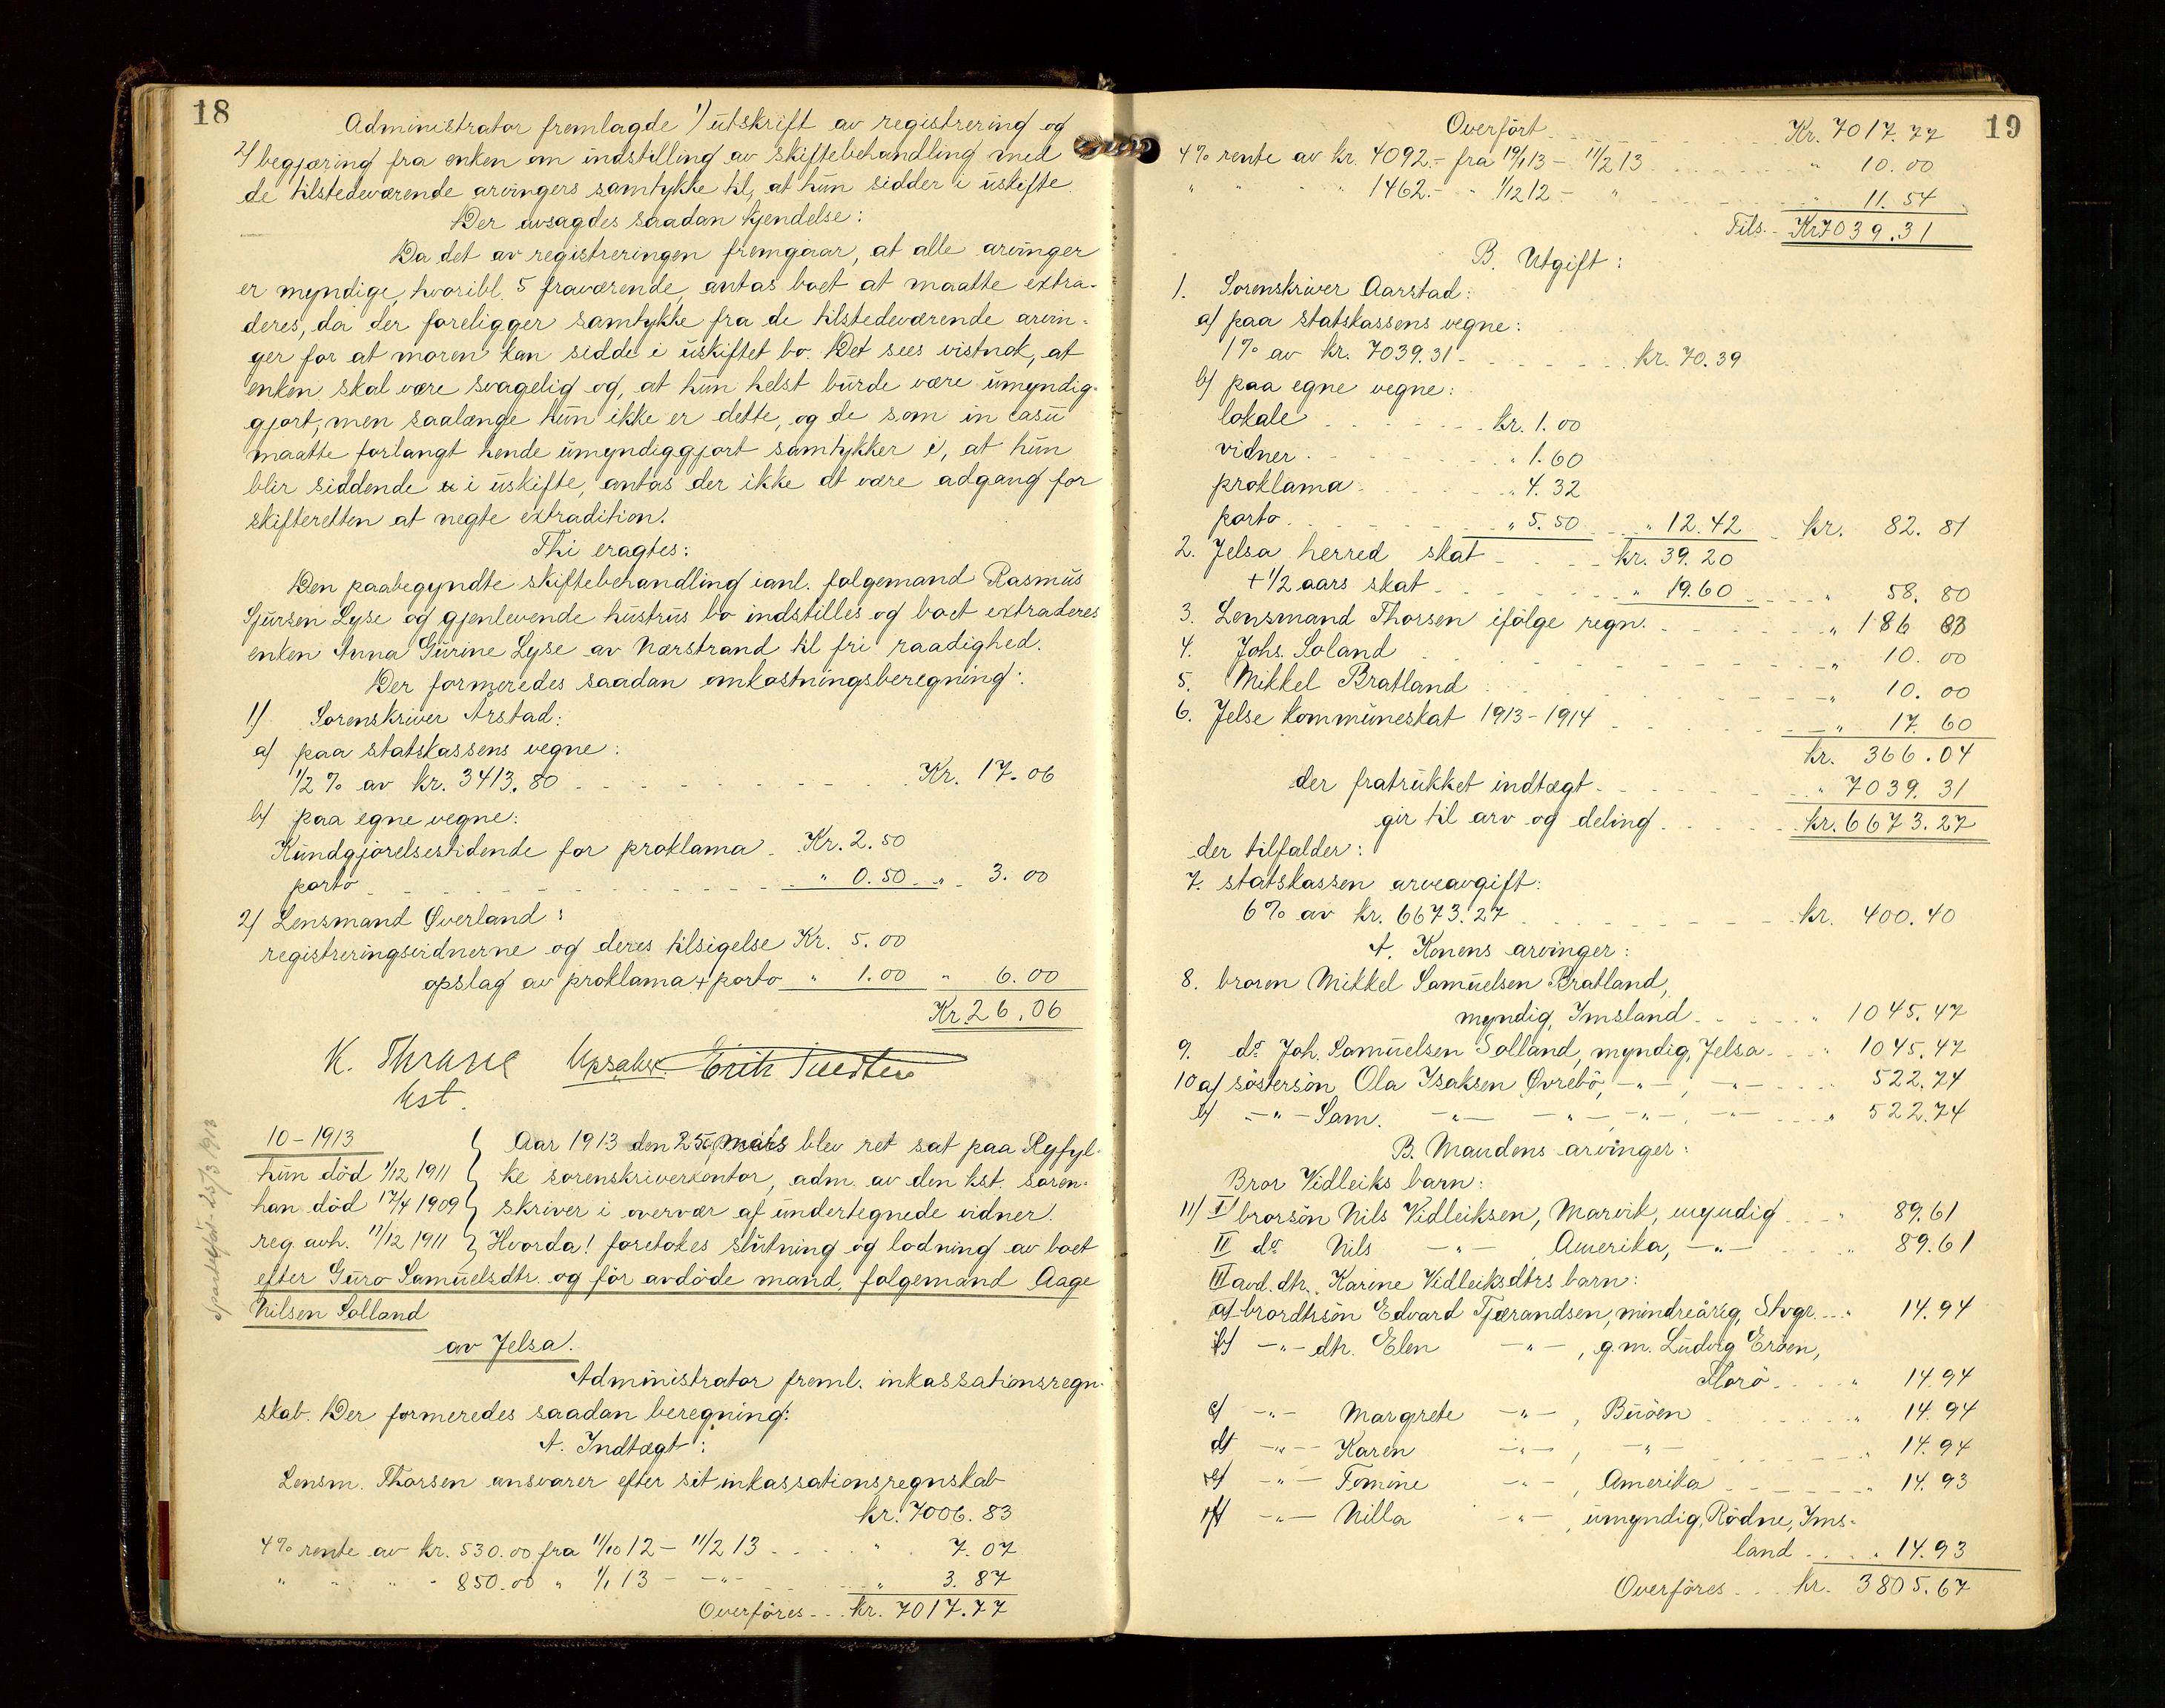 18
Administrator fremlagde 1) utskrift av registrering og
2) begjæring fra enken om indstilling av skiftebehandling med
de tilstedeværende arvingers samtykke til, at hun sidder i uskifte.
Der avsagdes saadan kjendelse:
Da det av registreringen fremgaar, at alle arvinger
er myndige, hvoribl. 5 fraværende, antas boet at maatte extra-
deres, da der foreligger samtykke fra de tilstedeværende arvin-
ger for at moren kan sidde i uskiftet bo. Det sees vistnok, at
enken skal være svagelig og, at hun helst burde være umyndig-
gjort, men saalænge hun ikke er dette, og de som in casu
maatte forlangt hende umyndiggjort samtykker i, at hun
blir siddende i uskifte, antas der ikke at være adgang for
skifteretten at negte extradition.
Thi eragtes:
Den paabegyndte skiftebehandling ianl. folgemand Rasmus
Sjursen Lyse og gjenlevende hustrus bo indstilles og boet extraderes
enken Anna Gurine Lyse av Nærstrand til fri raadighed.
Der formeredes saadan omkostningsberegning:
1) Sorenskriver Arstad:
a) paa statskassens vegne:
1/2 % av kr. 3413.80 Kr. 17.06
b) paa egne vegne:
Kundgjörelsestidende for proklama Kr. 2.50
porto " 0.50 " 3.00
2) Lensmand Øverland:
registreringsvidnerne og deres tilsigelse Kr. 5.00
opslag av proklama + porto " 1.00 " 6.00
Kr. 26.06
K. Thrane
kst.
10-1913
Aar 1913 den 25 mars blev ret sat paa Ryfyl-
hun död 1/12 1911 ke sorenskriverkontor, adm. av den kst. soren-
han död 17/4 1909 skriver i overvær af undertegnede vidner.
reg. avh. 11/12 1911 Hvorda! foretokes slutning og lodning av boet
efter Guro Samuelsdtr. og för avdöde mand, folgemand Aage
Nilsen Solland
av Jelsa.
Administrator freml. inkassationsregn-
skab. Der formeredes saadan beregning:
A. Indtægt:
Lensm. Thorsen ansvarer efter sit inkassationsregnskab
kr. 7006.83
4% rente av kr. 530.00 fra 11/10 12 - 11/2 13 " 7.07
" " " " 850.00 " 1/1 13 - -"- " 3.87
Overföres kr. 7017.77
19
Overfört Kr. 7017.77
4% rente av kr. 4092.- fra 19/1 13 - 11/2 13 " 10.00
" " " 1462.- " 1/12 12 - " 11.54
Tils. Kr. 7039.31
B. Utgift:
1. Sorenskriver Aarstad:
a) paa statskassens vegne:
1% av kr. 7039.31 kr. 70.39
b) paa egne vegne:
lokale kr. 1.00
vidner " 1.60
proklama " 4.32
porto " 5.50 " 12.42 kr. 82.81
2. Jelsa herred skat kr. 39.20
+ 1/2 aars skat " 19.60 " 58.80
3. Lensmand Thorsen ifölge regn. " 186 83
4. Johs. Soland " 10.00
5. Mikkel Bratland " 10.00
6. Jelse kommuneskat 1913-1914 " 17.60
kr. 366.04
der fratrukket indtægt " 7039.31
gir til arv og deling kr. 6673.27
der tilfalder:
7. statskassen arveavgift:
6% av kr. 6673.27 kr. 400.40
A. Konens arvinger:
8. broren Mikkel Samuelsen Bratland,
myndig, Imsland " 1045.47
9. do. Joh. Samuelsen Solland, myndig, Jelsa " 1045.47
10 a) söstersön Ola Isaksen Øvrebö, -"-, -"- 522.74
b) -"- Sam. -"- -"-, -"-, -"- " 522.74
B. Mandens arvinger:
Bror Vidleiks barn:
11) I brorsön Nils Vidleiksen, Marvik, myndig " 89.61
II do Nils -"- Amerika, -"- " 89.61
III avd. dtr. Karine Vidleiksdtrs barn:
a) brordtrsön Edvard Tjærandsen, mindreårig, Stvgr. " 14.94
b) -"- dtr. Elen -"-, g.m. Ludvig Eröen,
" 14.94
c) -"- Margrete -"-, Buöen " 14.94
d) -"- Karen -"-, -"- " 14.94
e) -"- Tomine -"-, Amerika " 14.93
f) -"- Nilla -"-, umyndig, Rödne, Ims-
land " 14.93
Overföres kr. 3805.67